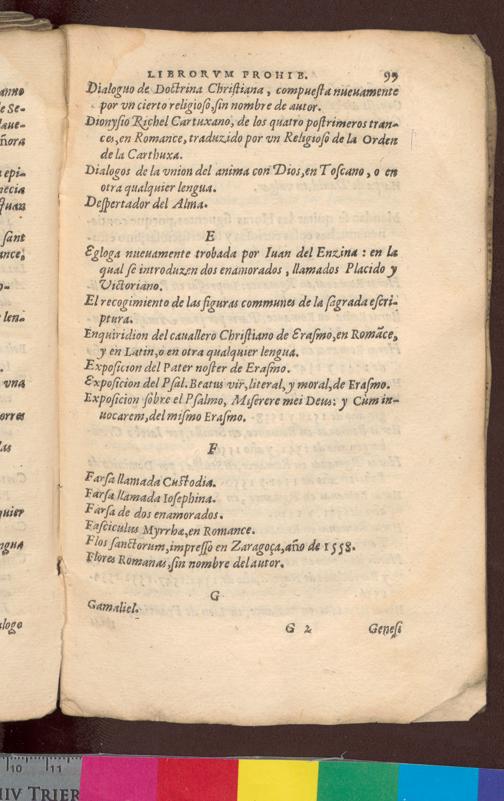 LIBRORVM PROHIB. 99
Dialoguo de Doctrina Christiana, compuesta nueuamente
por vn cierto religioso, sin nombre de autor.
Dionysio Richel Cartuxano, de los quatro postrimeros tran-
ces, en Romance, traduzido por vn Religioso de la Orden
de la Carthuxa.
Dialogos de la vnion del anima con Dios, en Toscano, o en
otra qualquier lengua.
Despertador del Alma.
E
Egloga nueuamente trobada por Iuan del Enzina: en la
qual se introduzen dos enamorados, llamados Placido y
Victoriano.
El recogimiento de las figuras communes de la sagrada escri-
ptura.
Enquiridion del cauallero Christiano de Erasmo, en Romāce,
y en Latin, o en otra qualquier lengua.
Exposicion del Pater noster de Erasmo.
Exposicion del Psal. Beatus vir, literal, y moral, de Erasmo.
Exposicion sobre el Psalmo, Miserere mei Deus: y Cum in-
uocarem, del mismo Erasmo.
F
Farsa llamada Custodia.
Farsa llamada Iosephina.
Farsa de dos enamorados.
Fasciculus Myrrhæ, en Romance.
Flos sanctorum, impresso en Zaragoça, año de 1558.
Flores Romanas, sin nombre del autor.
G
Gamaliel.
G 2 Genesi
anno
e Se-
ñora
epi-
necia
sant
ance,
len-
vna
orres
las
quier
ngua
alogo
10 11
IV TRIER